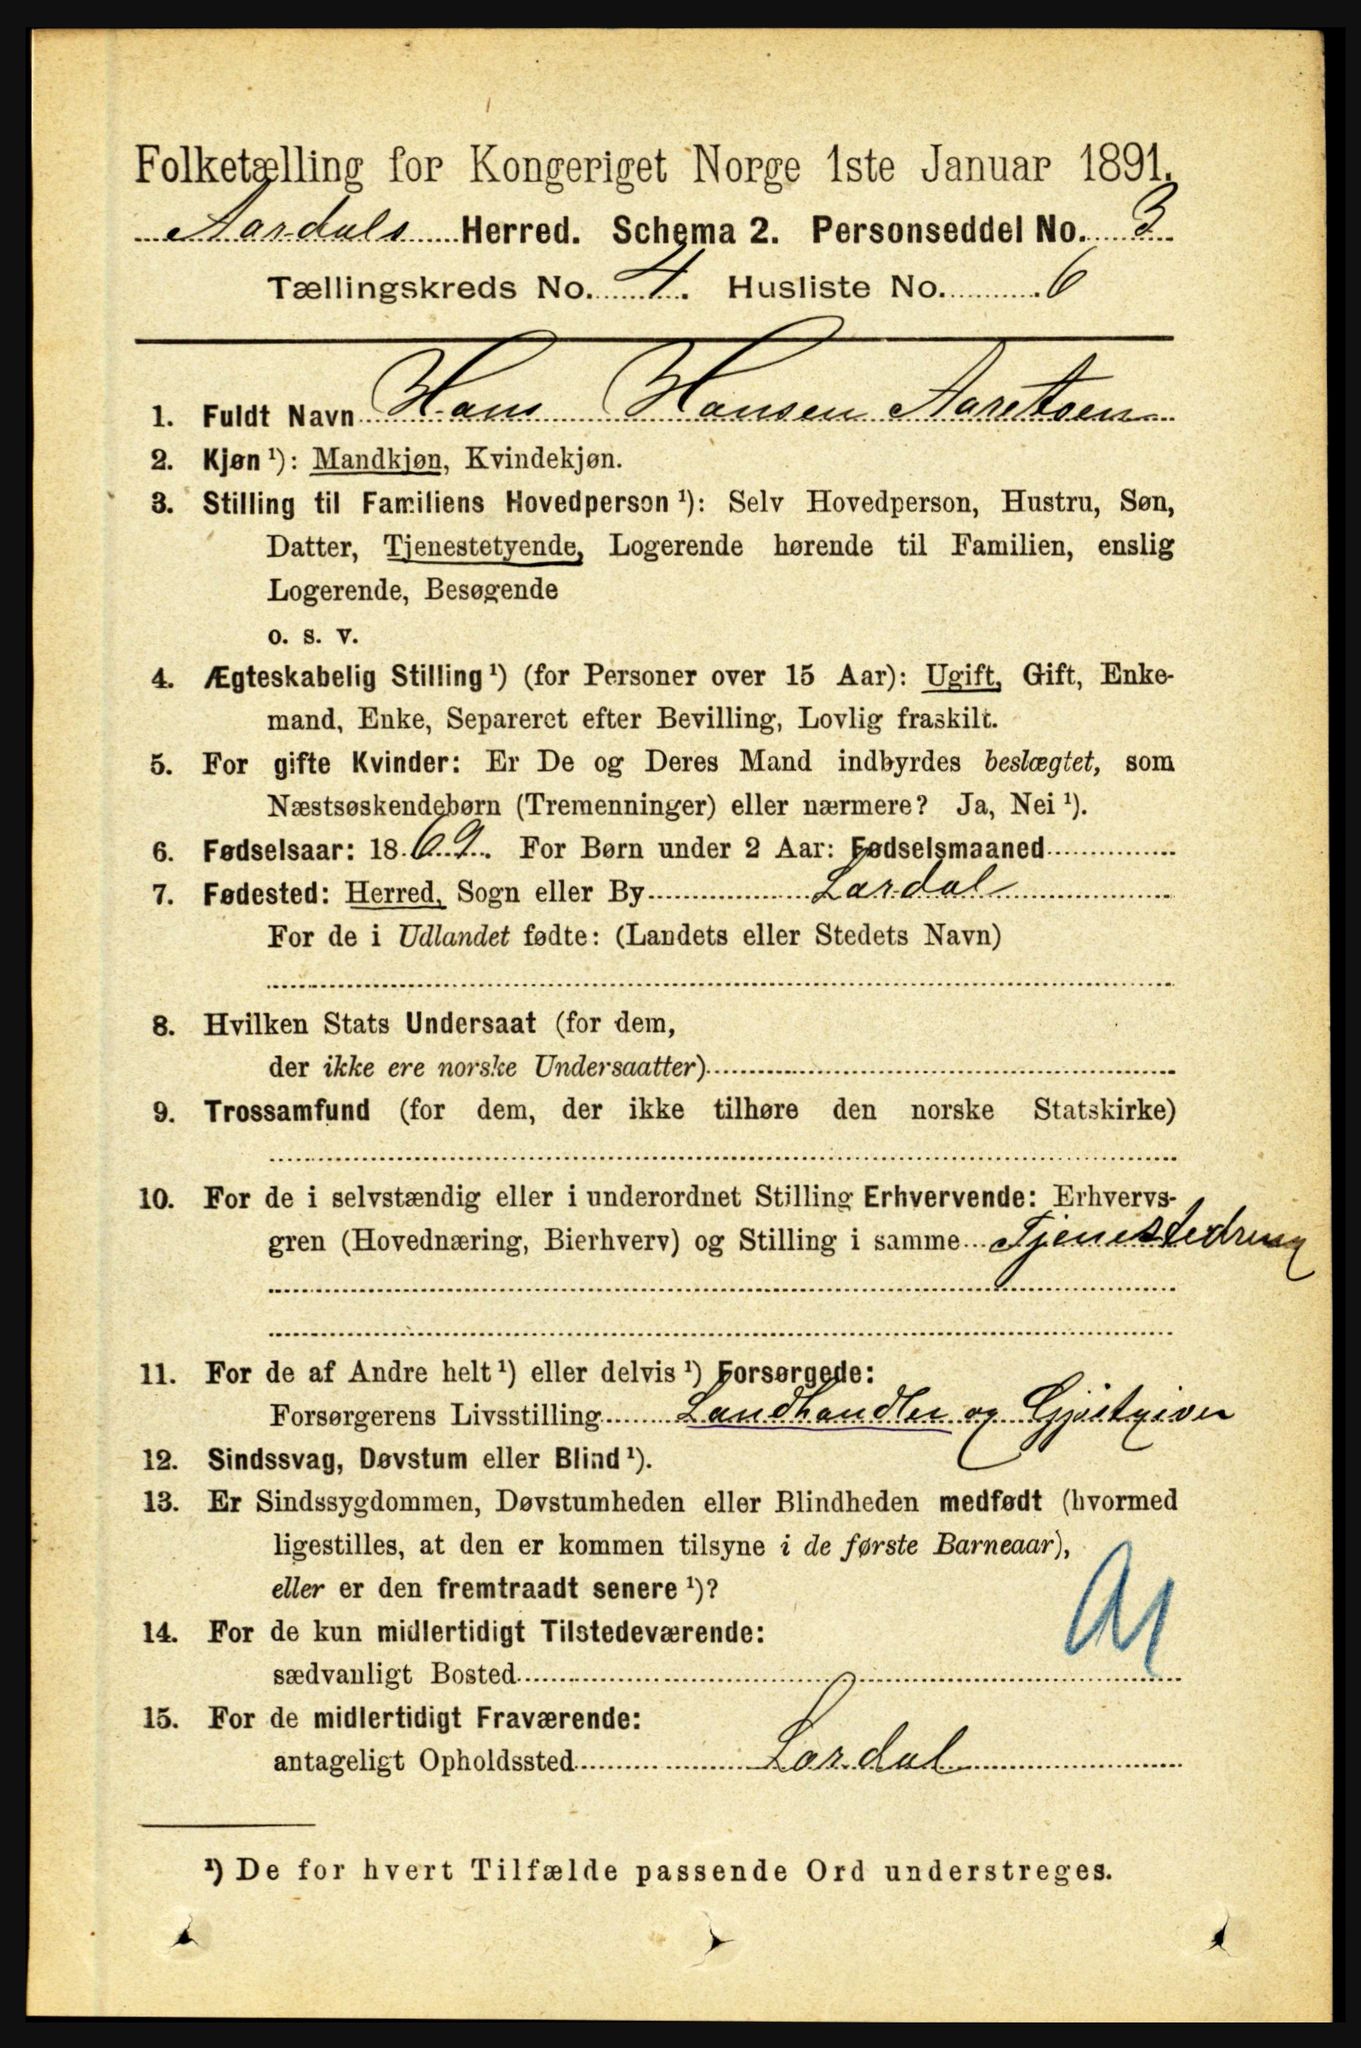 Folketælling for Kongeriget Norge 1ste Januar 1891.
Aardals Herred. Schema 2. Personseddel No. 3
Tællingskreds No. 4. Husliste No. 6
1. Fuldt Navn Hans Hansen Aaretsen
2. Kjøn ¹): Mandkjøn, Kvindekjøn.
3. Stilling til Familiens Hovedperson ¹): Selv Hovedperson, Hustru, Søn,
Datter, Tjenestetyende, Logerende hørende til Familien, enslig
Logerende, Besøgende
o. s. v.
4. Ægteskabelig Stilling ¹) (for Personer over 15 Aar): Ugift, Gift, Enke-
mand, Enke, Separeret efter Bevilling, Lovlig fraskilt.
5. For gifte Kvinder: Er De og Deres Mand indbyrdes beslægtet, som
Næstsøskendebørn (Tremenninger) eller nærmere? Ja, Nei ¹).
6. Fødselsaar: 1869. For Børn under 2 Aar: Fødselsmaaned
7. Fødested: Herred, Sogn eller By Lærdal
For de i Udlandet fødte: (Landets eller Stedets Navn)
8. Hvilken Stats Undersaat (for dem,
der ikke ere norske Undersaatter)
9. Trossamfund (for dem, der ikke tilhøre den norske Statskirke)
10. For de i selvstændig eller i underordnet Stilling Erhvervende: Erhvervs-
gren (Hovednæring, Bierhverv) og Stilling i samme Tjenestedreng
11. For de af Andre helt ¹) eller delvis ¹) Forsørgede:
Forsørgerens Livsstilling Landhandler og Gjæstgiver
12. Sindssvag, Døvstum eller Blind ¹).
13. Er Sindssygdommen, Døvstumheden eller Blindheden medfødt (hvormed
ligestilles, at den er kommen tilsyne i de første Barneaar),
eller er den fremtraadt senere ¹)?
14. For de kun midlertidigt Tilstedeværende:
sædvanligt Bosted
15. For de midlertidigt Fraværende:
antageligt Opholdssted Lærdal
¹) De for hvert Tilfælde passende Ord understreges.